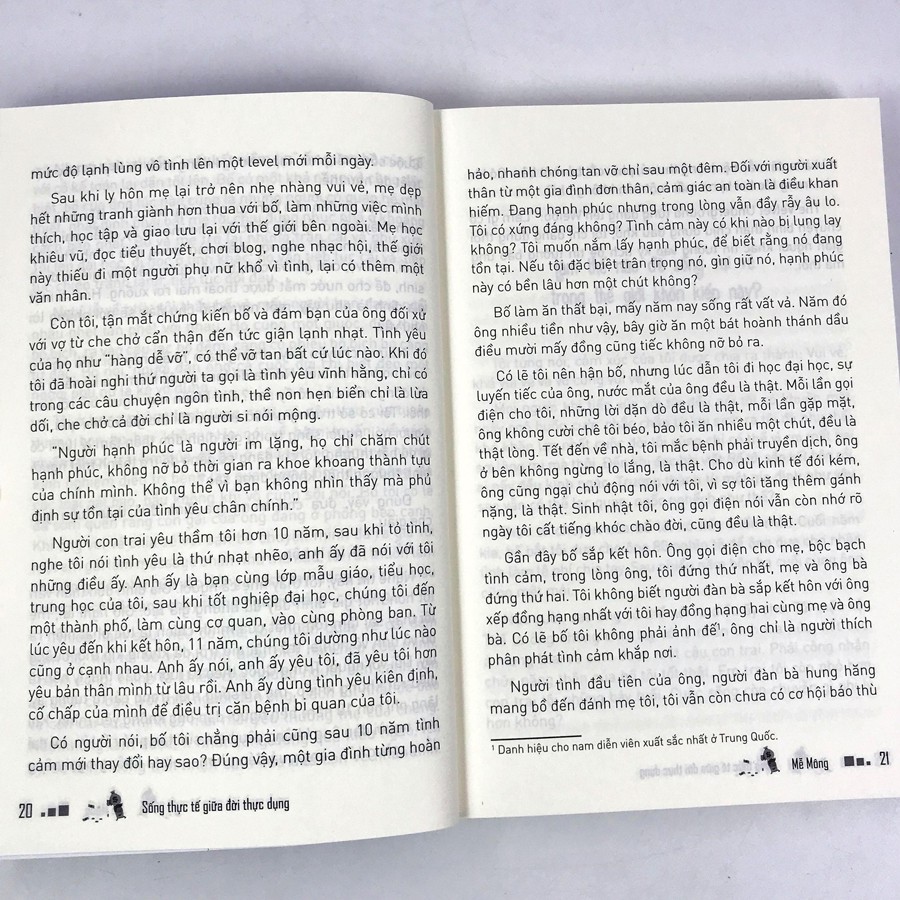 mức độ lạnh lùng vô tình lên một level mới mỗi ngày.
Sau khi ly hôn mẹ lại trở nên nhẹ nhàng vui vẻ, mẹ dẹp
hết những tranh giành hơn thua với bố, làm những việc mình
thích, học tập và giao lưu lại với thế giới bên ngoài. Mẹ học
khiêu vũ, đọc tiểu thuyết, chơi blog, nghe nhạc hội, thế giới
này thiếu đi một người phụ nữ khổ vì tình, lại có thêm một
văn nhân.
Còn tôi, tận mắt chứng kiến bố và đám bạn của ông đối xử
với vợ từ che chở cẩn thận đến tức giận lạnh nhạt. Tình yêu
của họ như “hàng dễ vỡ”, có thể vỡ tan bất cứ lúc nào. Khi đó
tôi đã hoài nghi thứ người ta gọi là tình yêu vĩnh hằng, chỉ có
trong các câu chuyện ngôn tình, thề non hẹn biển chỉ là lừa
dối, che chở cả đời chỉ là người si nói mộng.
“Người hạnh phúc là người im lặng, họ chỉ chăm chút
hạnh phúc, không nỡ bỏ thời gian ra khoe khoang thành tựu
của chính mình. Không thể vì bạn không nhìn thấy mà phủ
định sự tồn tại của tình yêu chân chính.”
Người con trai yêu thầm tôi hơn 10 năm, sau khi tỏ tình,
nghe tôi nói tình yêu là thứ nhạt nhẽo, anh ấy đã nói với tôi
những điều ấy. Anh ấy là bạn cùng lớp mẫu giáo, tiểu học,
trung học của tôi, sau khi tốt nghiệp đại học, chúng tôi đến
một thành phố, làm cùng cơ quan, vào cùng phòng ban. Từ
lúc yêu đến khi kết hôn, 11 năm, chúng tôi dường như lúc nào
cũng ở cạnh nhau. Anh ấy nói, anh ấy yêu tôi, đã yêu tôi hơn
yêu bản thân mình từ lâu rồi. Anh ấy dùng tình yêu kiên định,
cố chấp của mình để điều trị căn bệnh bi quan của tôi.
Có người nói, bố tôi chẳng phải cũng sau 10 năm tình
cảm mới thay đổi hay sao? Đúng vậy, một gia đình từng hoàn
20 Sống thực tế giữa đời thực dụng
hảo, nhanh chóng tan vỡ chỉ sau một đêm. Đối với người xuất
thân từ một gia đình đơn thân, cảm giác an toàn là điều khan
hiếm. Đang hạnh phúc nhưng trong lòng vẫn đầy rẫy âu lo.
Tôi có xứng đáng không? Tình cảm này có khi nào bị lung lay
không? Tôi muốn nắm lấy hạnh phúc, để biết rằng nó đang
tồn tại. Nếu tôi đặc biệt trân trọng nó, gìn giữ nó, hạnh phúc
này có bền lâu hơn một chút không?
Bố làm ăn thất bại, mấy năm nay sống rất vất vả. Năm đó
ông nhiều tiền như vậy, bây giờ ăn một bát hoành thánh dầu
điều mười mấy đồng cũng tiếc không nỡ bỏ ra.
Có lẽ tôi nên hận bố, nhưng lúc dẫn tôi đi học đại học, sự
luyến tiếc của ông, nước mắt của ông đều là thật. Mỗi lần gọi
điện cho tôi, những lời dặn dò đều là thật, mỗi lần gặp mặt,
ông không cười chê tôi béo, bảo tôi ăn nhiều một chút, đều là
thật lòng. Tết đến về nhà, tôi mắc bệnh phải truyền dịch, ông
ở bên không ngừng lo lắng, là thật. Cho dù kinh tế đói kém,
ông cũng ngại chủ động nói với tôi, vì sợ tôi tăng thêm gánh
nặng, là thật. Sinh nhật tôi, ông gọi điện nói vẫn còn nhớ rõ
ngày tôi cất tiếng khóc chào đời, cũng đều là thật.
Gần đây bố sắp kết hôn. Ông gọi điện cho mẹ, bộc bạch
tình cảm, trong lòng ông, tôi đứng thứ nhất, mẹ và ông bà
đứng thứ hai. Tôi không biết người đàn bà sắp kết hôn với ông
xếp đồng hạng nhất với tôi hay đồng hạng hai cùng mẹ và ông
bà. Có lẽ bố tôi không phải ảnh đế¹, ông chỉ là người thích
phân phát tình cảm khắp nơi.
Người tình đầu tiên của ông, người đàn bà hung hăng
mang bồ đến đánh mẹ tôi, tôi vẫn còn chưa có cơ hội báo thù
¹ Danh hiệu cho nam diễn viên xuất sắc nhất ở Trung Quốc.
Mễ Mông 21